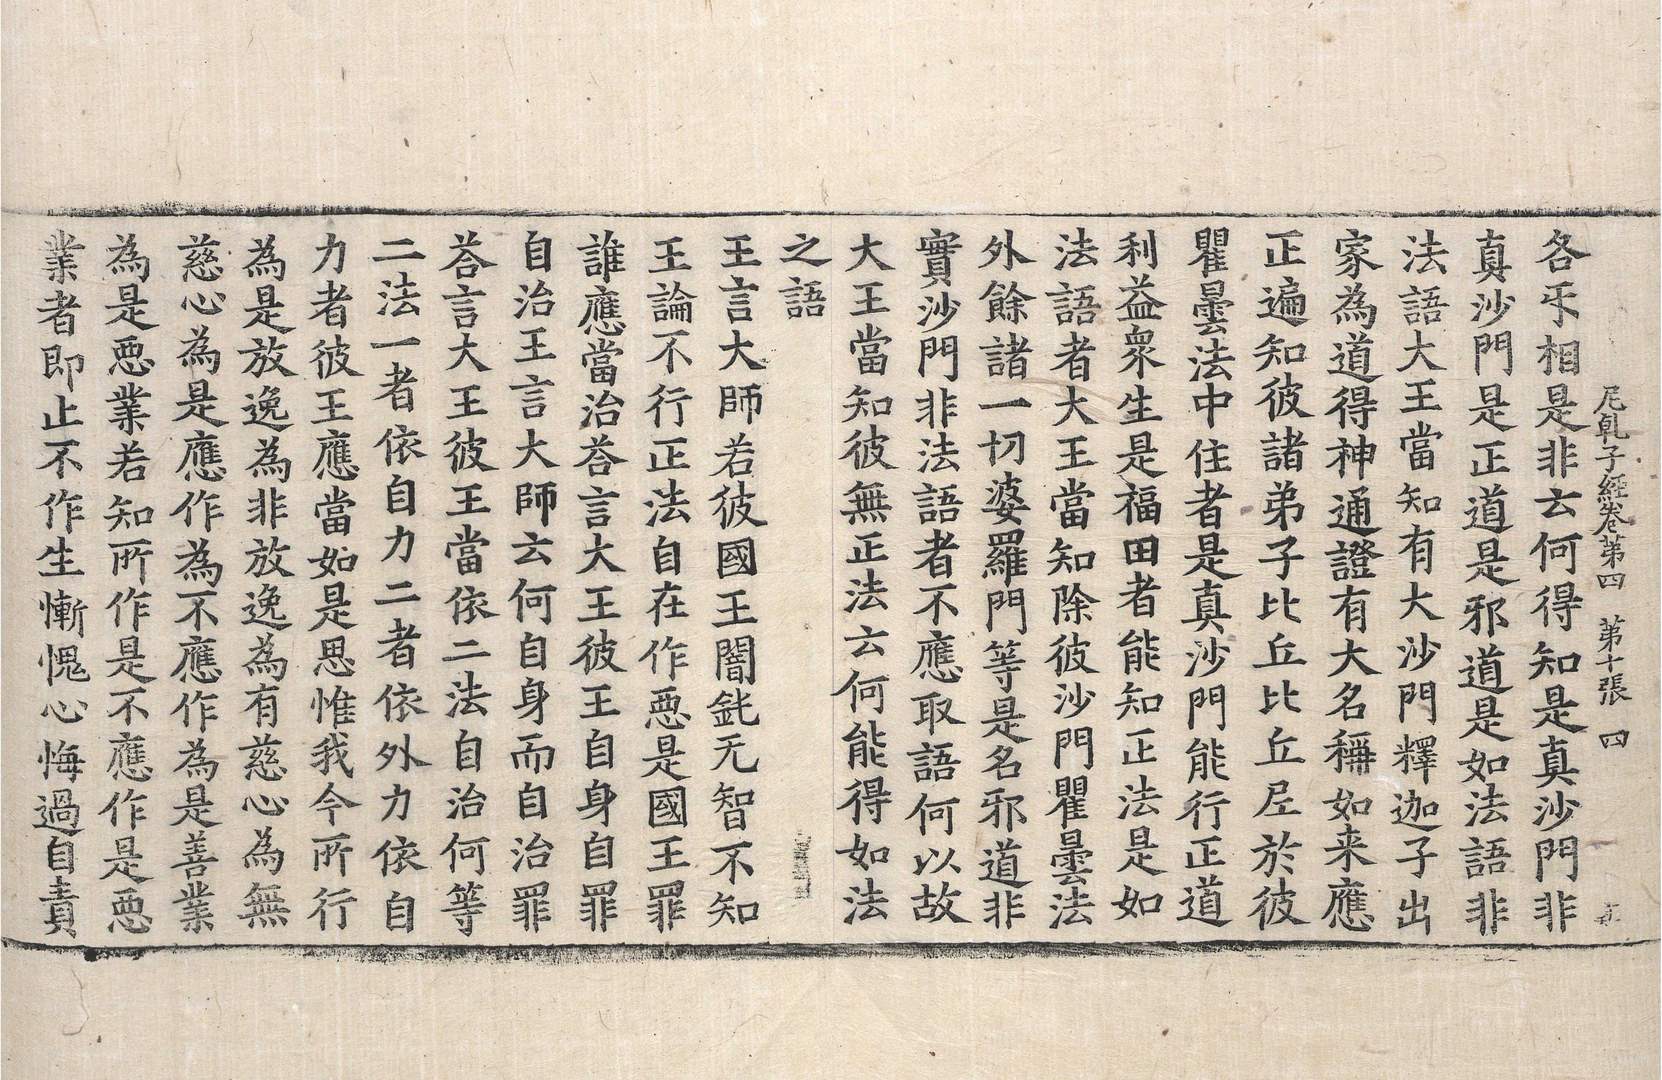 尼乹子経卷第四　第十張　四
各𠄔相是非云何得知是真沙門非
真沙門是正道是邪道是如法語非
法語大王當知有大沙門釋迦子出
家為道得神通證有大名稱如来應
正遍知彼諸弟子比丘比丘尼於彼
瞿曇法中住者是真沙門能行正道
利益衆生是福田者能知正法是如
法語者大王當知除彼沙門瞿曇法
外餘諸一切婆羅門等是名邪道非
實沙門非法語者不應取語何以故
大王當知彼無正法云何能得如法
之語
王言大師若彼國王闇鈍无智不知
王論不行正法自在作惡是國王罪
誰應當治荅言大王彼王自身自罪
自治王言大師云何自身而自治罪
荅言大王彼王當依二法自治何等
二法一者依自力二者依外力依自
力者彼王應當如是思惟我今所行
為是放逸為非放逸為有慈心為無
慈心為是應作為不應作為是善業
為是惡業若知所作是不應作是惡
業者即止不作生慚愧心悔過自責